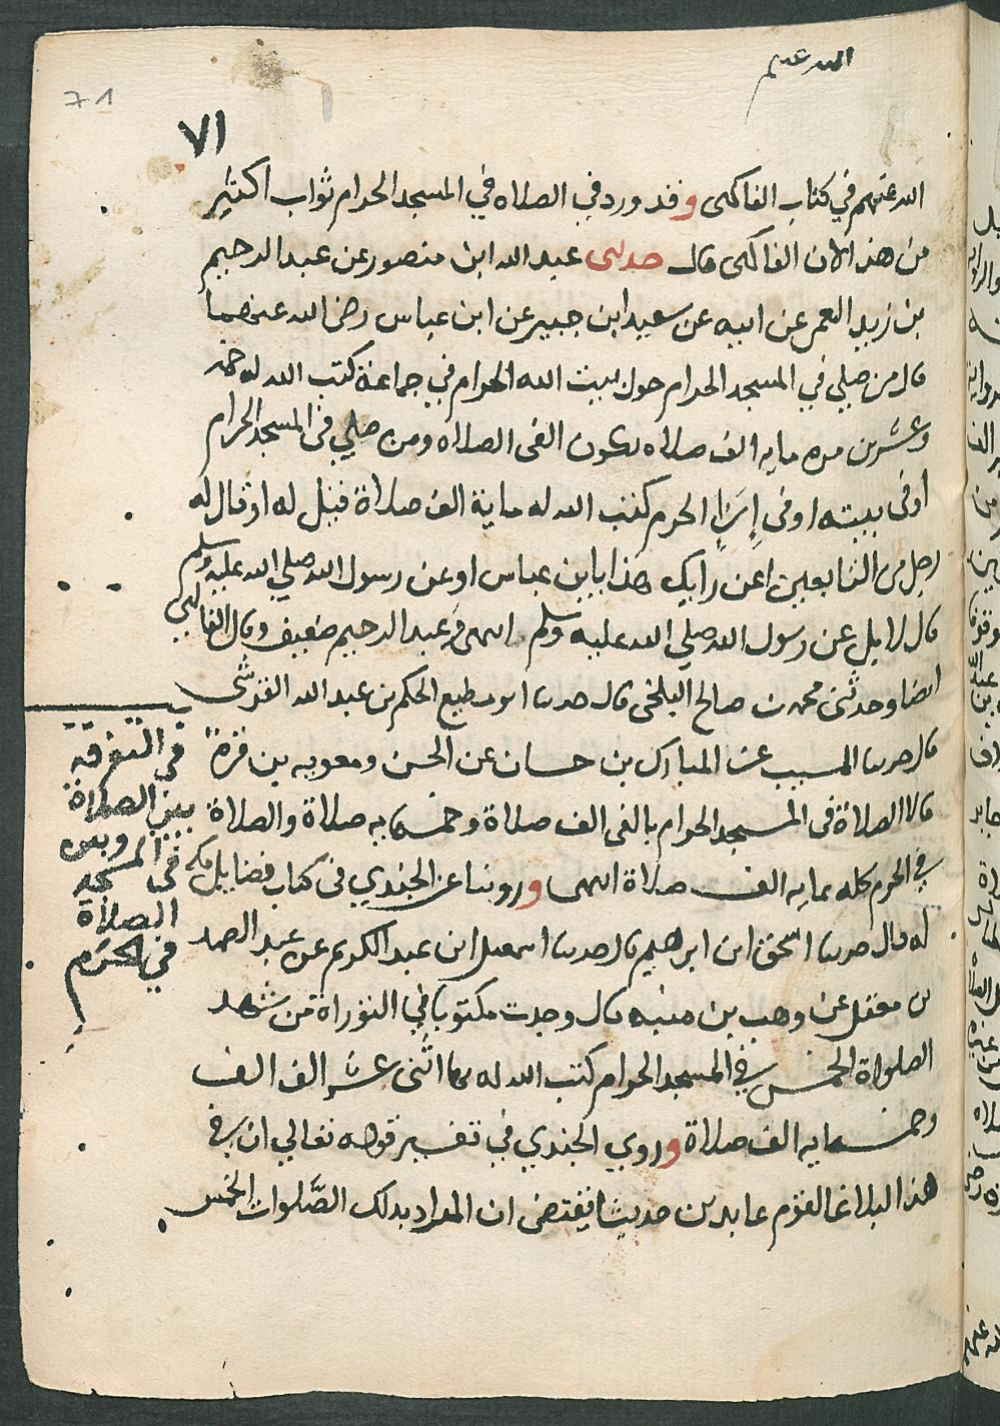 الله عنهم
٧١
71
الله عنهم في كتاب الفاكهى وقد ورد في الصلاه في المسجد الحرام ثواب اكثير
من هذا لان الفاكهى قال حدثنى عبد الله ابن منصور عن عبد الرحيم
بن زيد العمى عن ابيه عن سعيد ابن جبير عن ابن عباس رضى الله عنهما
قال من صلي في المسجد الحرام حول بيت الله الحرام في جماعة كتب الله له خمسه
وعشرين مره مايه الف صلاه يكون الفى الصلاه ومن صلي فى المسجد الحرام
اوفى بيته اوفى الحرم كتب الله له ماية الف صلاة فقيل له او قال له
رجل من التابعين اعن رايك هذا يا ابن عباس او عن رسول الله صلي الله عليه وسلم
قال لا بل عن رسول الله صلي الله عليه وسلم انتهى وعبد الرحيم ضعيف وقال الفاكهى
ايضا وحدثنى محمد بن صالح البلخى قال حدثنا ابو مطيع الحكم بن عبد الله القرشى
قال حدثنا المسيب عن المبارك بن حسان عن الحسن ومعويه بن قرة
قالا الصلاة فى المسجد الحرام بالفى الف صلاة وخمسمايه صلاة والصلاة
في الحرم كله بمايه الف صلاة انتهى وروينا عن الجندي فى كتاب فضايل مكه
له قال حدثنا اسحق ابن ابراهيم قال حدثنا اسمعيل ابن عبد الكريم عن عبد الصمد
بن معقل عن وهب بن منبه قال وجدت مكتوبا في التوراة من شهد
الصلواة الخمس في المسجد الحرام كتب الله له بها اثنى عشر الف الف
وخمسمايه الف صلاة وروي الجندي في تفسير قوله تعالي ان في
هذا لبلاغا لقوم عابدين حديثا يقتضى ان المراد بذلك الصَّلوات الخمس
في التفرقه
بين الصلاة
فى المسجد وبين
الصلاة
في الحرم